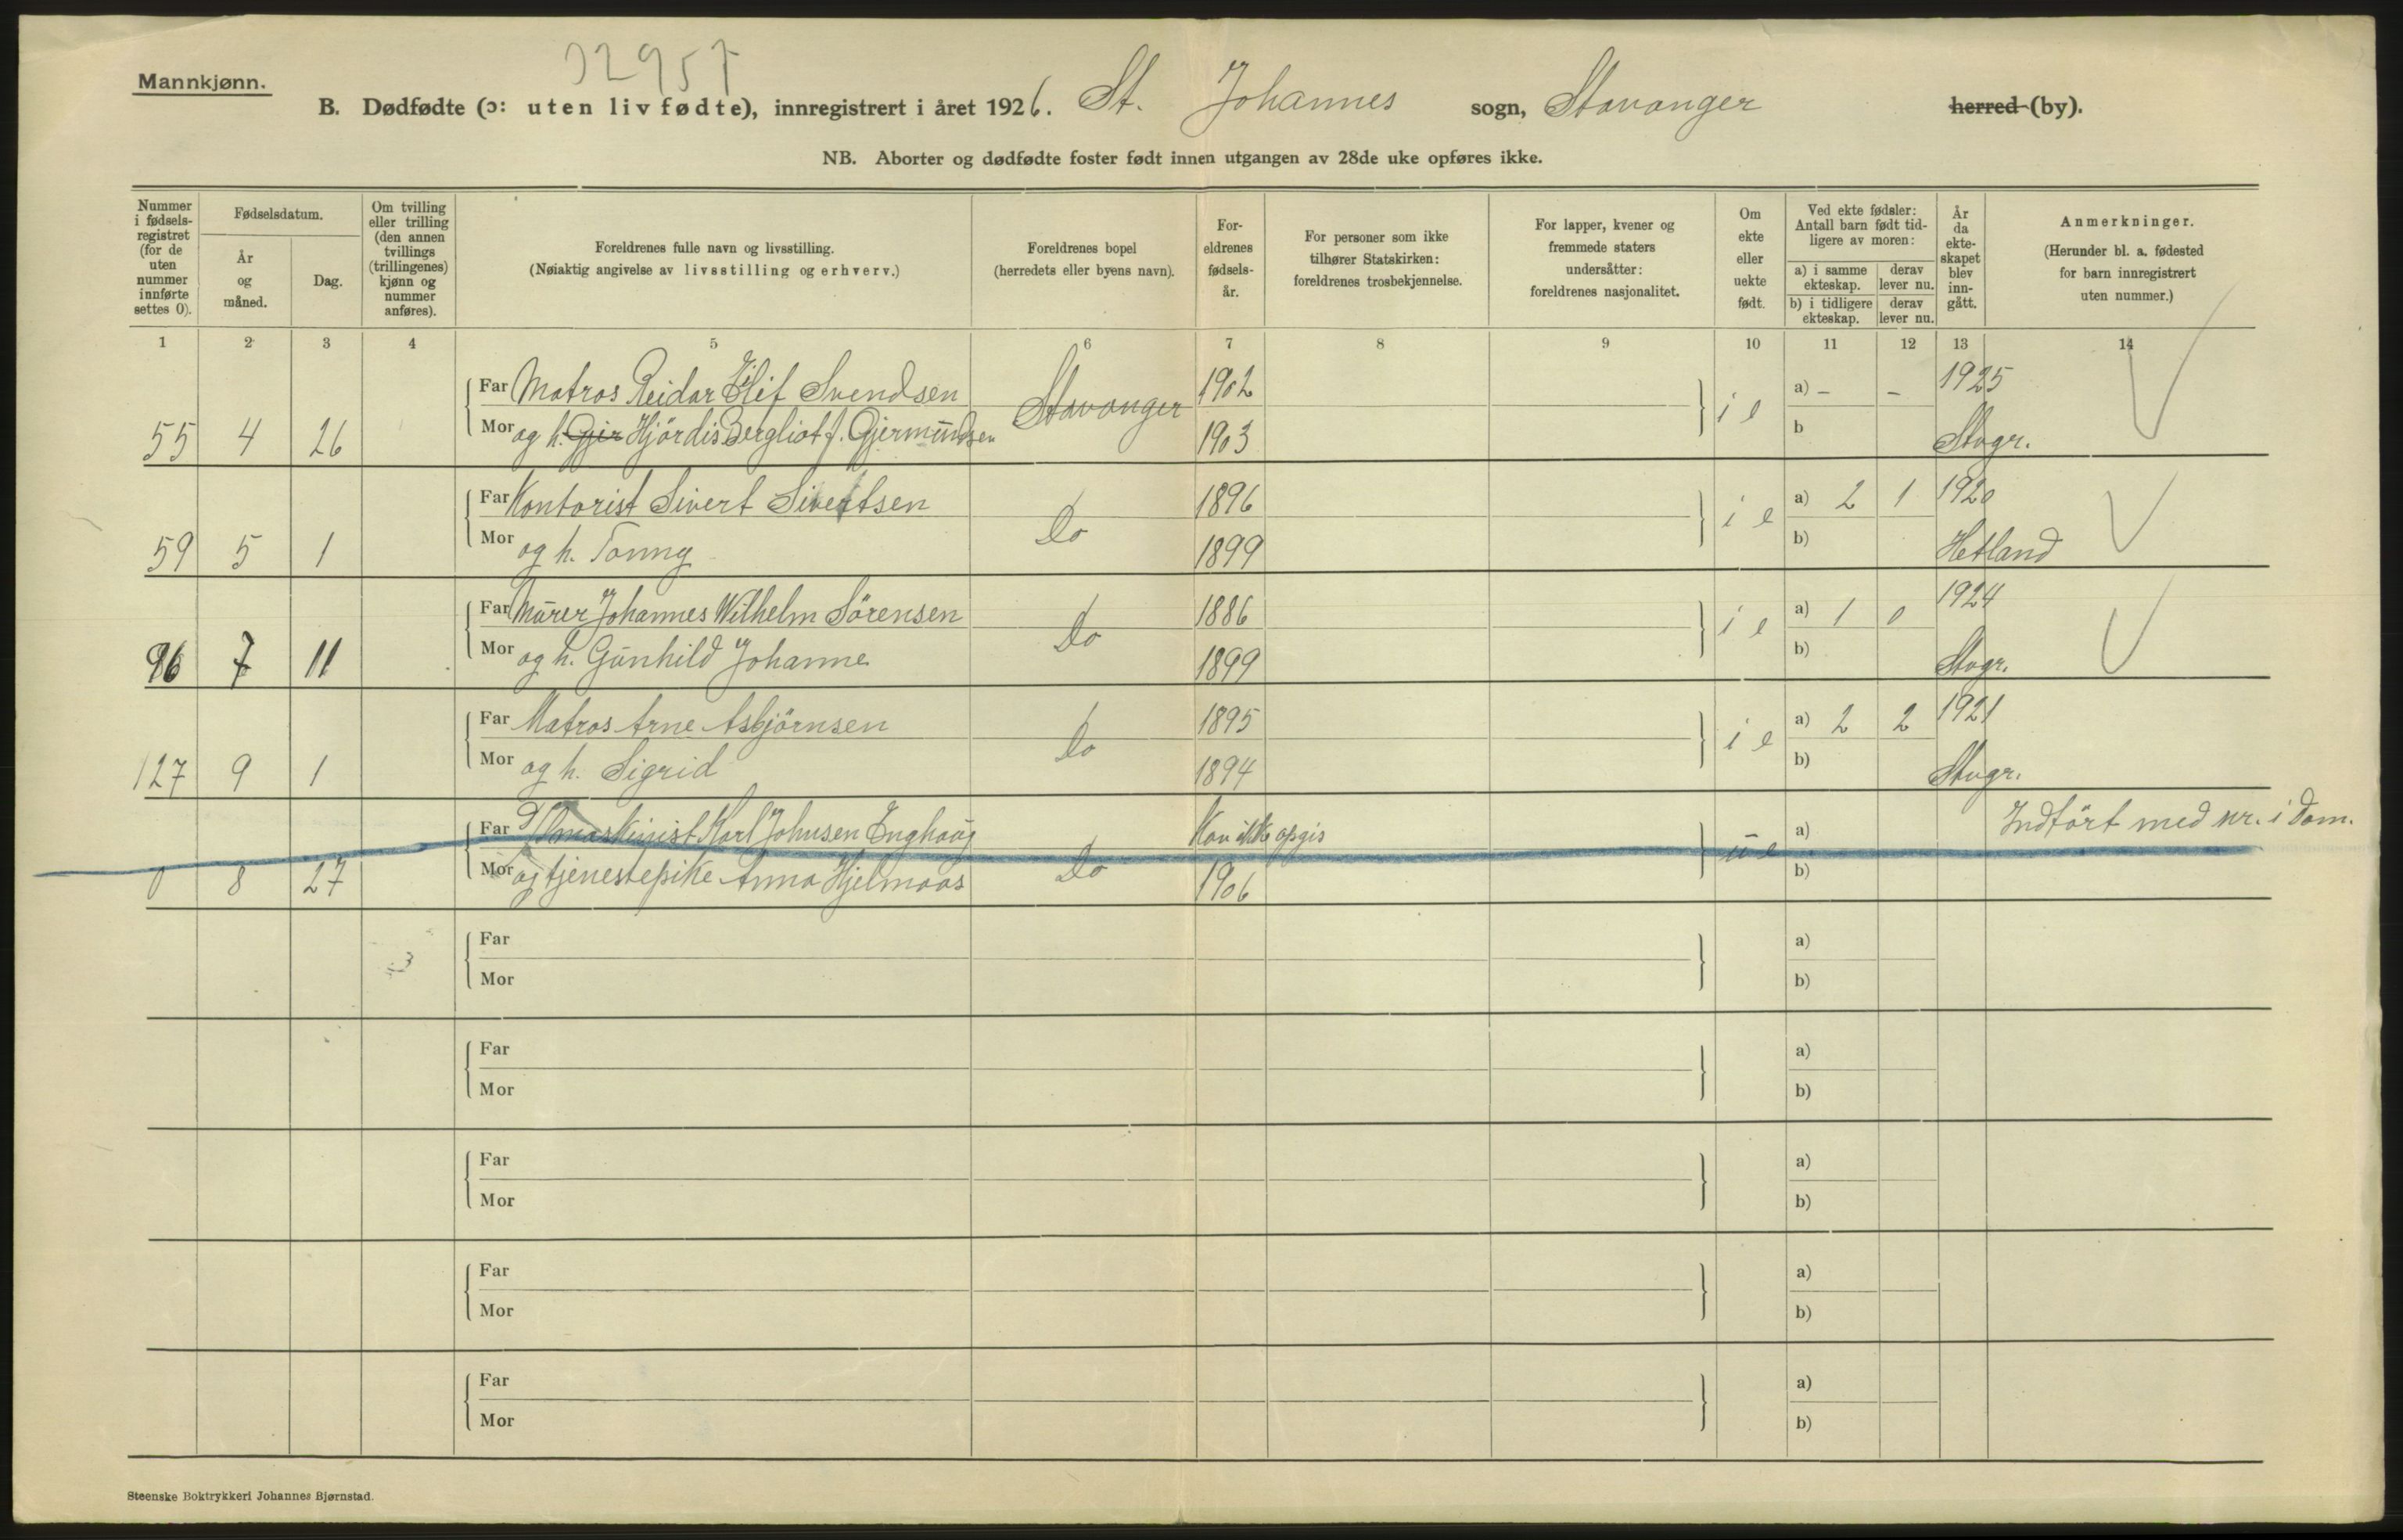 Mannkjønn.
B. Dødfødte (ɔ: uten liv fødte), innregistrert i året 1926. St. Johannes sogn, Stavanger herred (by).
NB. Aborter og dødfødte foster født innen utgangen av 28de uke opføres ikke.
Nummer i fødsels-registret (for de uten nummer innførte settes 0).
Fødselsdatum.
År og måned.
Dag.
Om tvilling eller trilling (den annen tvillings (trillingenes) kjønn og nummer anføres).
Foreldrenes fulle navn og livsstilling.
(Nøiaktig angivelse av livsstilling og erhverv.)
Foreldrenes bopel
(herredets eller byens navn).
For-eldrenes fødsels-år.
For personer som ikke tilhører Statskirken: foreldrenes trosbekjennelse.
For lapper, kvener og fremmede staters undersåtter: foreldrenes nasjonalitet.
Om ekte eller uekte født.
Ved ekte fødsler: Antall barn født tid-ligere av moren:
a) i samme ekteskap.
derav lever nu.
b) i tidligere ekteskap.
derav lever nu.
År da ekte-skapet blev inn-gått.
Anmerkninger.
(Herunder bl. a. fødested for barn innregistrert uten nummer.)
1 2 3 4 5 6 7 8 9 10 11 12 13 14
Far Matros Reidar Svendsen Stavanger 1902 i e a) - - 1925
55 4 26 Mor og h. Gjer Hjördis Bergliot f. Gjermundsen 1903 b Stvgr.
Far Kontorist Sivert Sivertsen Do 1896 i e a) 2 1 1920
59 5 1 Mor og h. Tonny 1899 b) Hetland
Far Murer Johannes Wilhelm Sörensen Do 1886 i e a) 1 0 1924
96 7 11 Mor og h. Gunhild Johanne 1899 b) Stvgr.
Far Matros Arne Asbjörnsen Do 1895 i e a) 2 2 1921
127 9 1 Mor og h. Sigrid 1894 b) Stvgr.
Far Karl Johnsen Enghaug Do Kan ikke opgis u e a) Indført med nr. i Dom.
0 8 27 Mor og tjenestepike Anna Hjelmaas 1906 b)
Far a)
Mor b)
Far a)
Mor b)
Far a)
Mor b)
Far a)
Mor b)
Far a)
Mor b)
Steenske Boktrykkeri Johannes Bjørnstad.